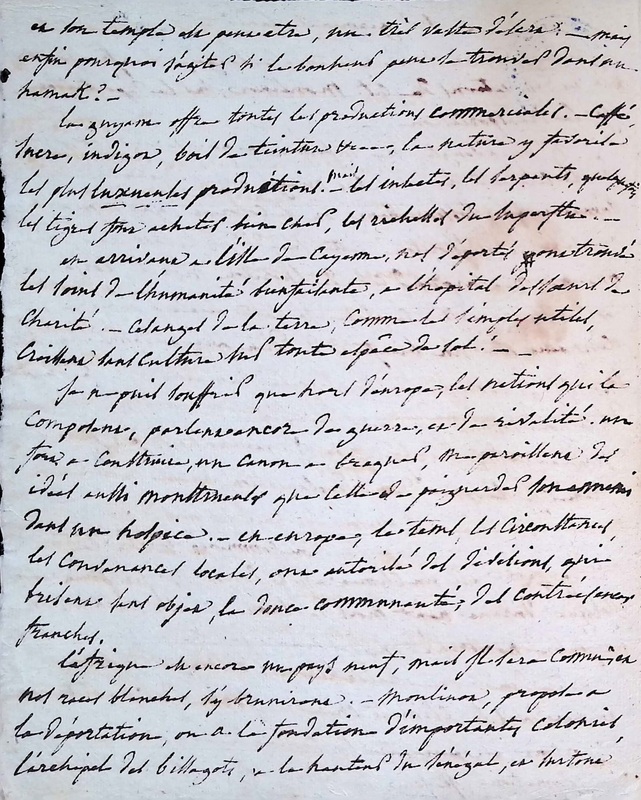 en son temple est peut etre, un très vaste désert. — mais
enfin pourquoi s'agiter si le bonheur peut se trouver dans un
hamak? —
la guyane offre toutes les productions commerciales. — Caffé,
sucre, indigo, bois de teinture &c — la nature y favorise
les plus luxueuses productions. — mais les insectes, les serpents, quelquefois
les tigres font acheter bien cher, les richesses du superflu. —
en arrivant a l'isle de Cayenne, nos déportés, ont trouvé
les soins de l'humanité bienfaisante, a l'hopital des sœurs de
charité. — Ces anges de la terre, comme les simples utiles,
croissent sans culture sur toute espèce de sol! —
Je ne puis souffrir que hors d'europe, les nations qui la
composent, parlent encore de guerre, et de rivalité. un
fort a construire, un canon a braquer, me paroissent des
idées aussi monstrueuses que celle de poignarder son ennemi
dans un hospice. — en europe, le tems, les circonstances,
les convenances locales, ont autorisé des divisions, qui
brisent sans objet, la douce communauté, des contrées encor
franches.
l'afrique est encore un pays neuf, mais il sera commun, et
nos races blanches, s'y bruniront. — Moulinot, propose a
la déportation, ou a la fondation d'importantes colonies,
l'archipel des bissagots, a la hauteur du Sénégal, et surtout